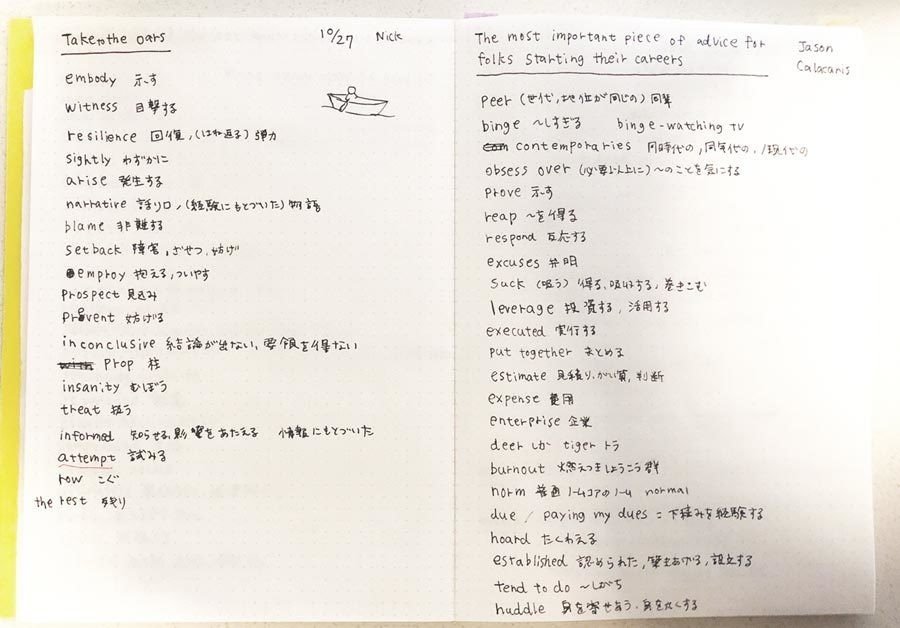 Take to the oars
10/27 Nick
embody 示す
witness 目撃する
resilience 回復,(はね返る) 弾力
sightly わずかに
arise 発生する
narrative 語り口,(経験にもとづいた) 物語
blame 非難する
setback 障害,ざせつ,妨げ
employ 抱える,ついやす
prospect 見込み
prevent 妨げる
inconclusive 結論が出ない、要領を得ない
prop 柱
insanity むぼう
threat 扱う
informed 知らせる,影響をあたえる 情報にもとづいた
attempt 試みる
row こぐ
the rest 残り
The most important piece of advice for
folks starting their careers
Jason
Calacanis
peer (世代,地位が同じの) 同輩
binge 〜しすぎる binge-watching TV
contemporaries 同時代の,同年代の,/現代の
obsess over (必要以上に) 〜のことを気にする
prove 示す
reap 〜を得る
respond 反応する
excuses 弁明
suck (吸う) 得る、吸収する,巻きこむ
leverage 投資する,活用する
executed 実行する
put together まとめる
estimate 見積り,がい算,判断
expense 費用
enterprise 企業
deer しか tiger トラ
burnout 燃えつきしょうこう群
norm 普通 ノームコアのノーム normal
due / paying my dues = 下積みを経験する
hoard たくわえる
established 認められた,築きあげる,設立する
tend to do 〜しがち
huddle 身を寄せあう・身を丸くする